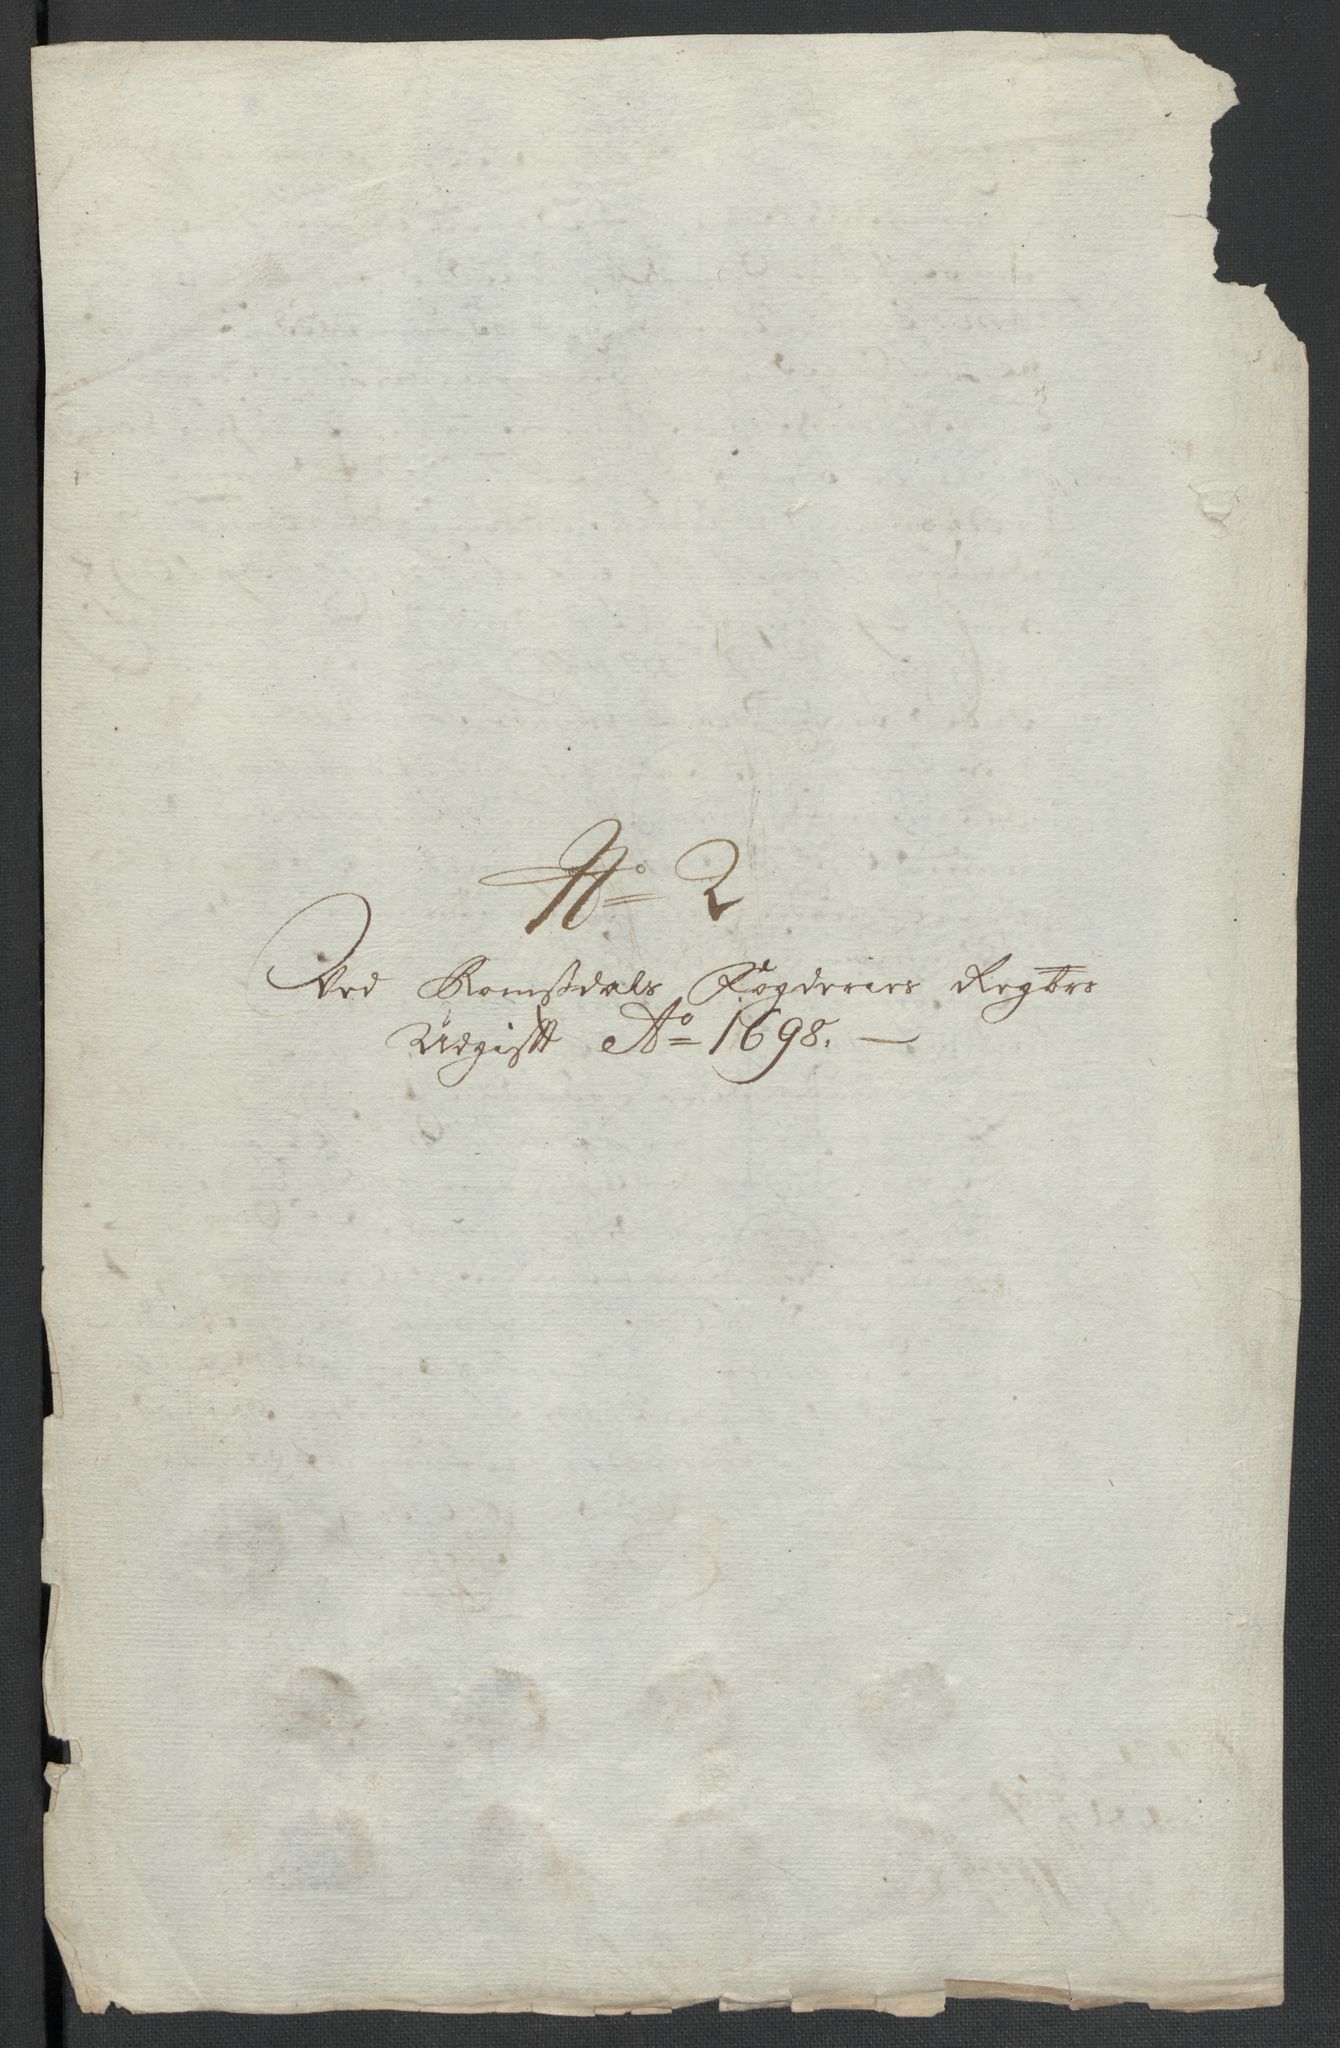 No 2
Ved Romsdals Fogderies Regbs
Udgifft Ao 1698.